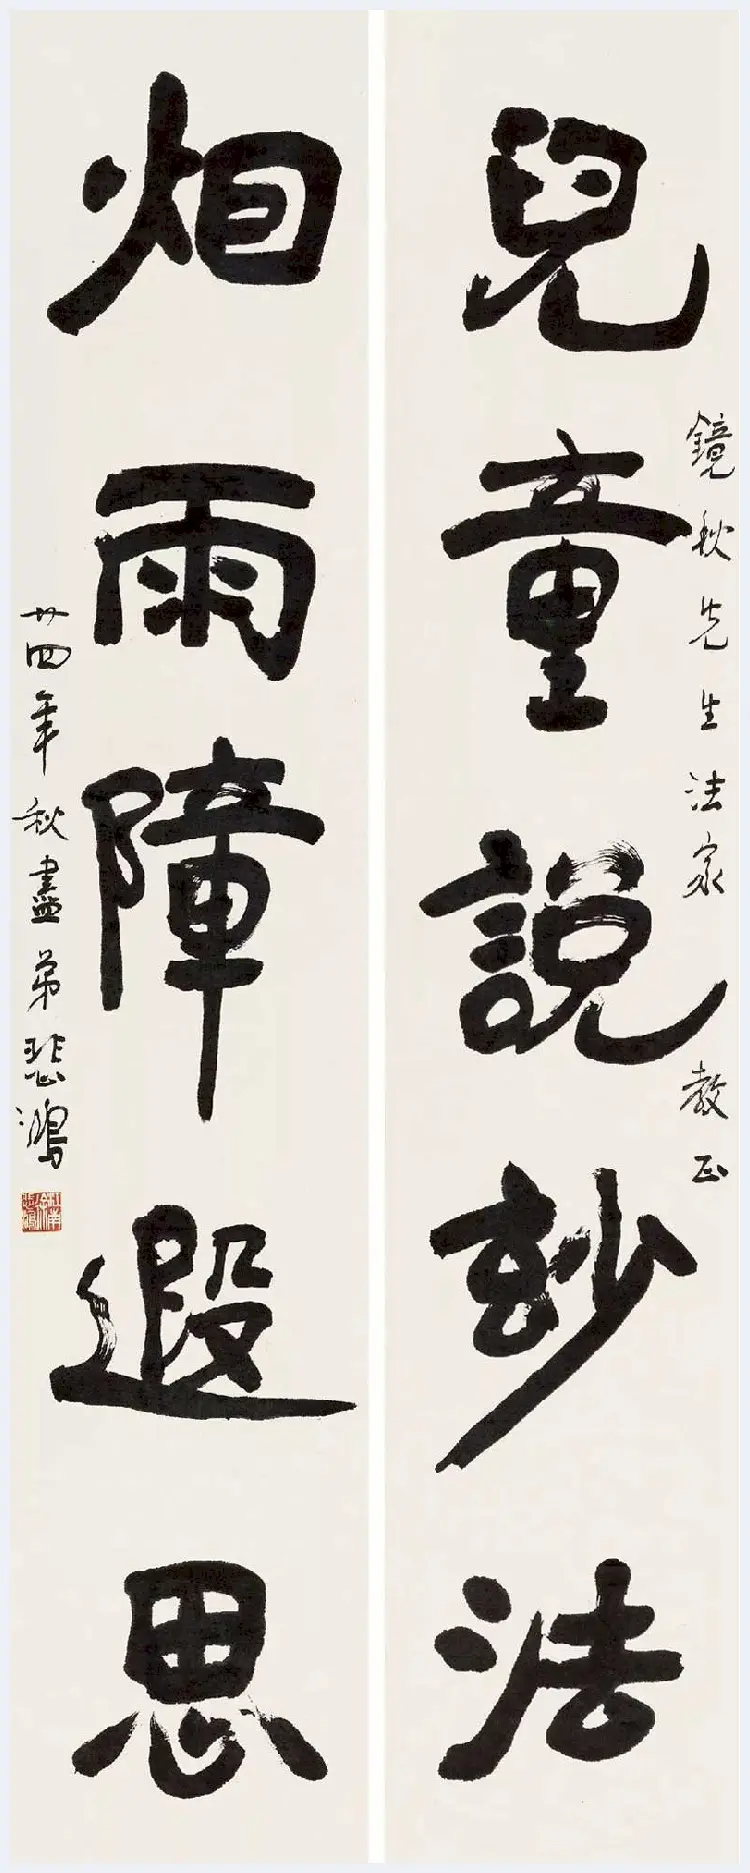 鏡秋先生法家 教正
兒童說玅法
烟雨障遐思
廿四年秋盡弟悲鴻